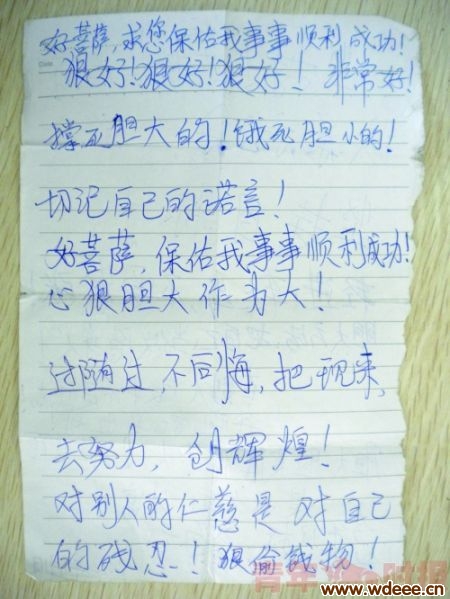 好菩萨,求您保估我事事顺利成功!
狠好!狠好!狠好! 非常好!
撑死胆大的!饿死胆小的!
切记自己的诺言!
好菩萨,保估我事事顺利成功!
心狠胆大作为大!
过随过,不回悔,把现来,
去努力,创辉煌!
对别人的仁慈是对自己
的残忍!狠偷钱物!
青年时报
www.wdeee.cn